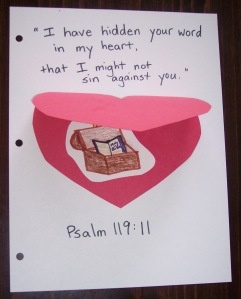 "I have hidden your word
in my heart,
that I might not
sin against you."
Psalm 119:11